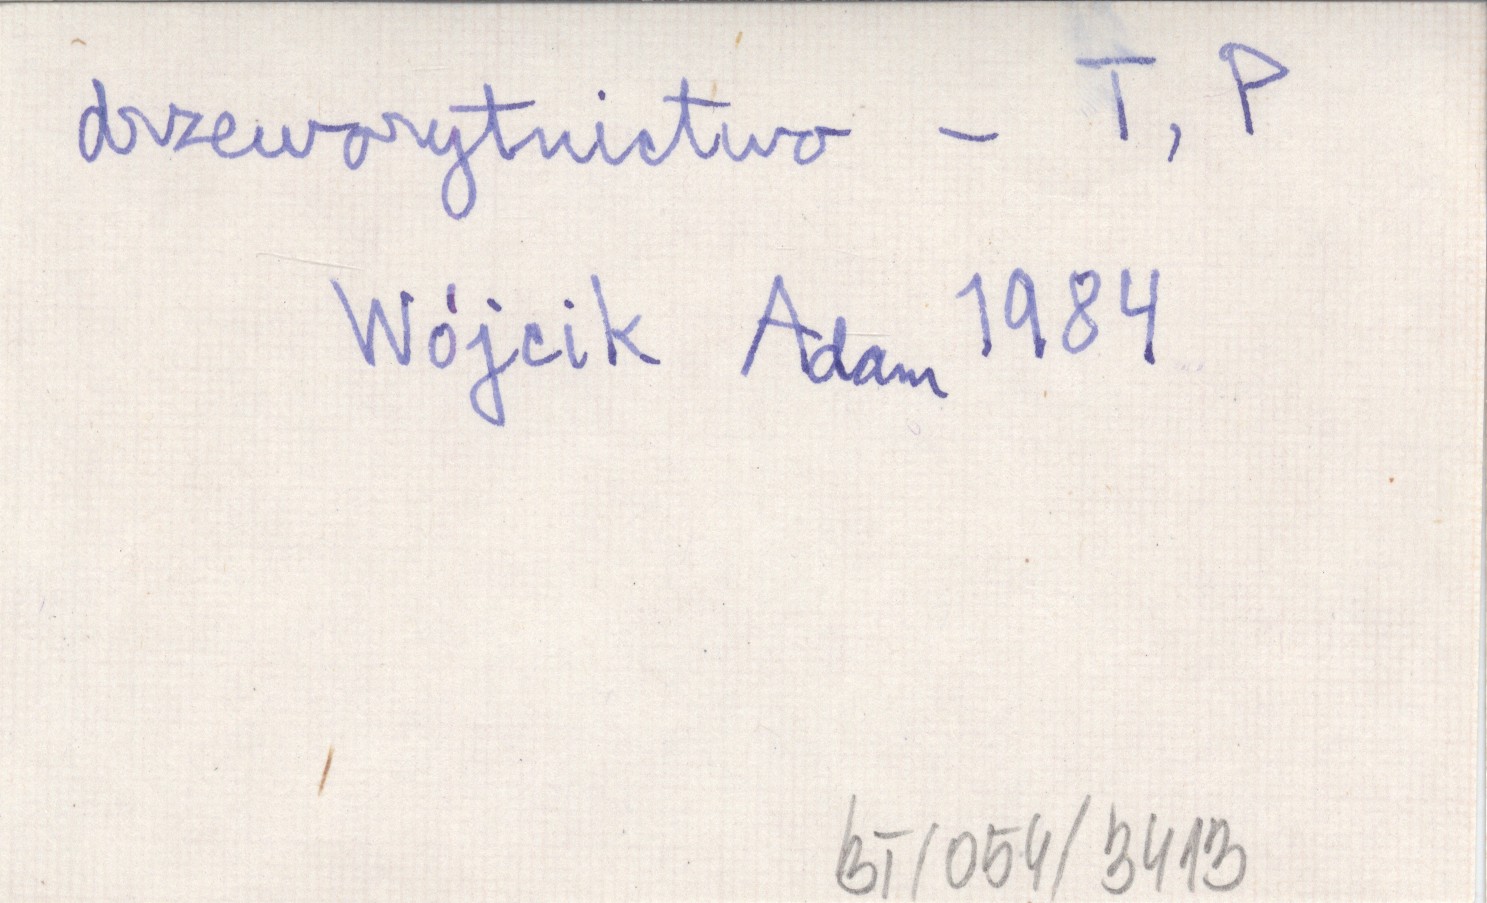 drzeworytnictwo - T, P
Wójcik Adam 1984
BT/054/3413